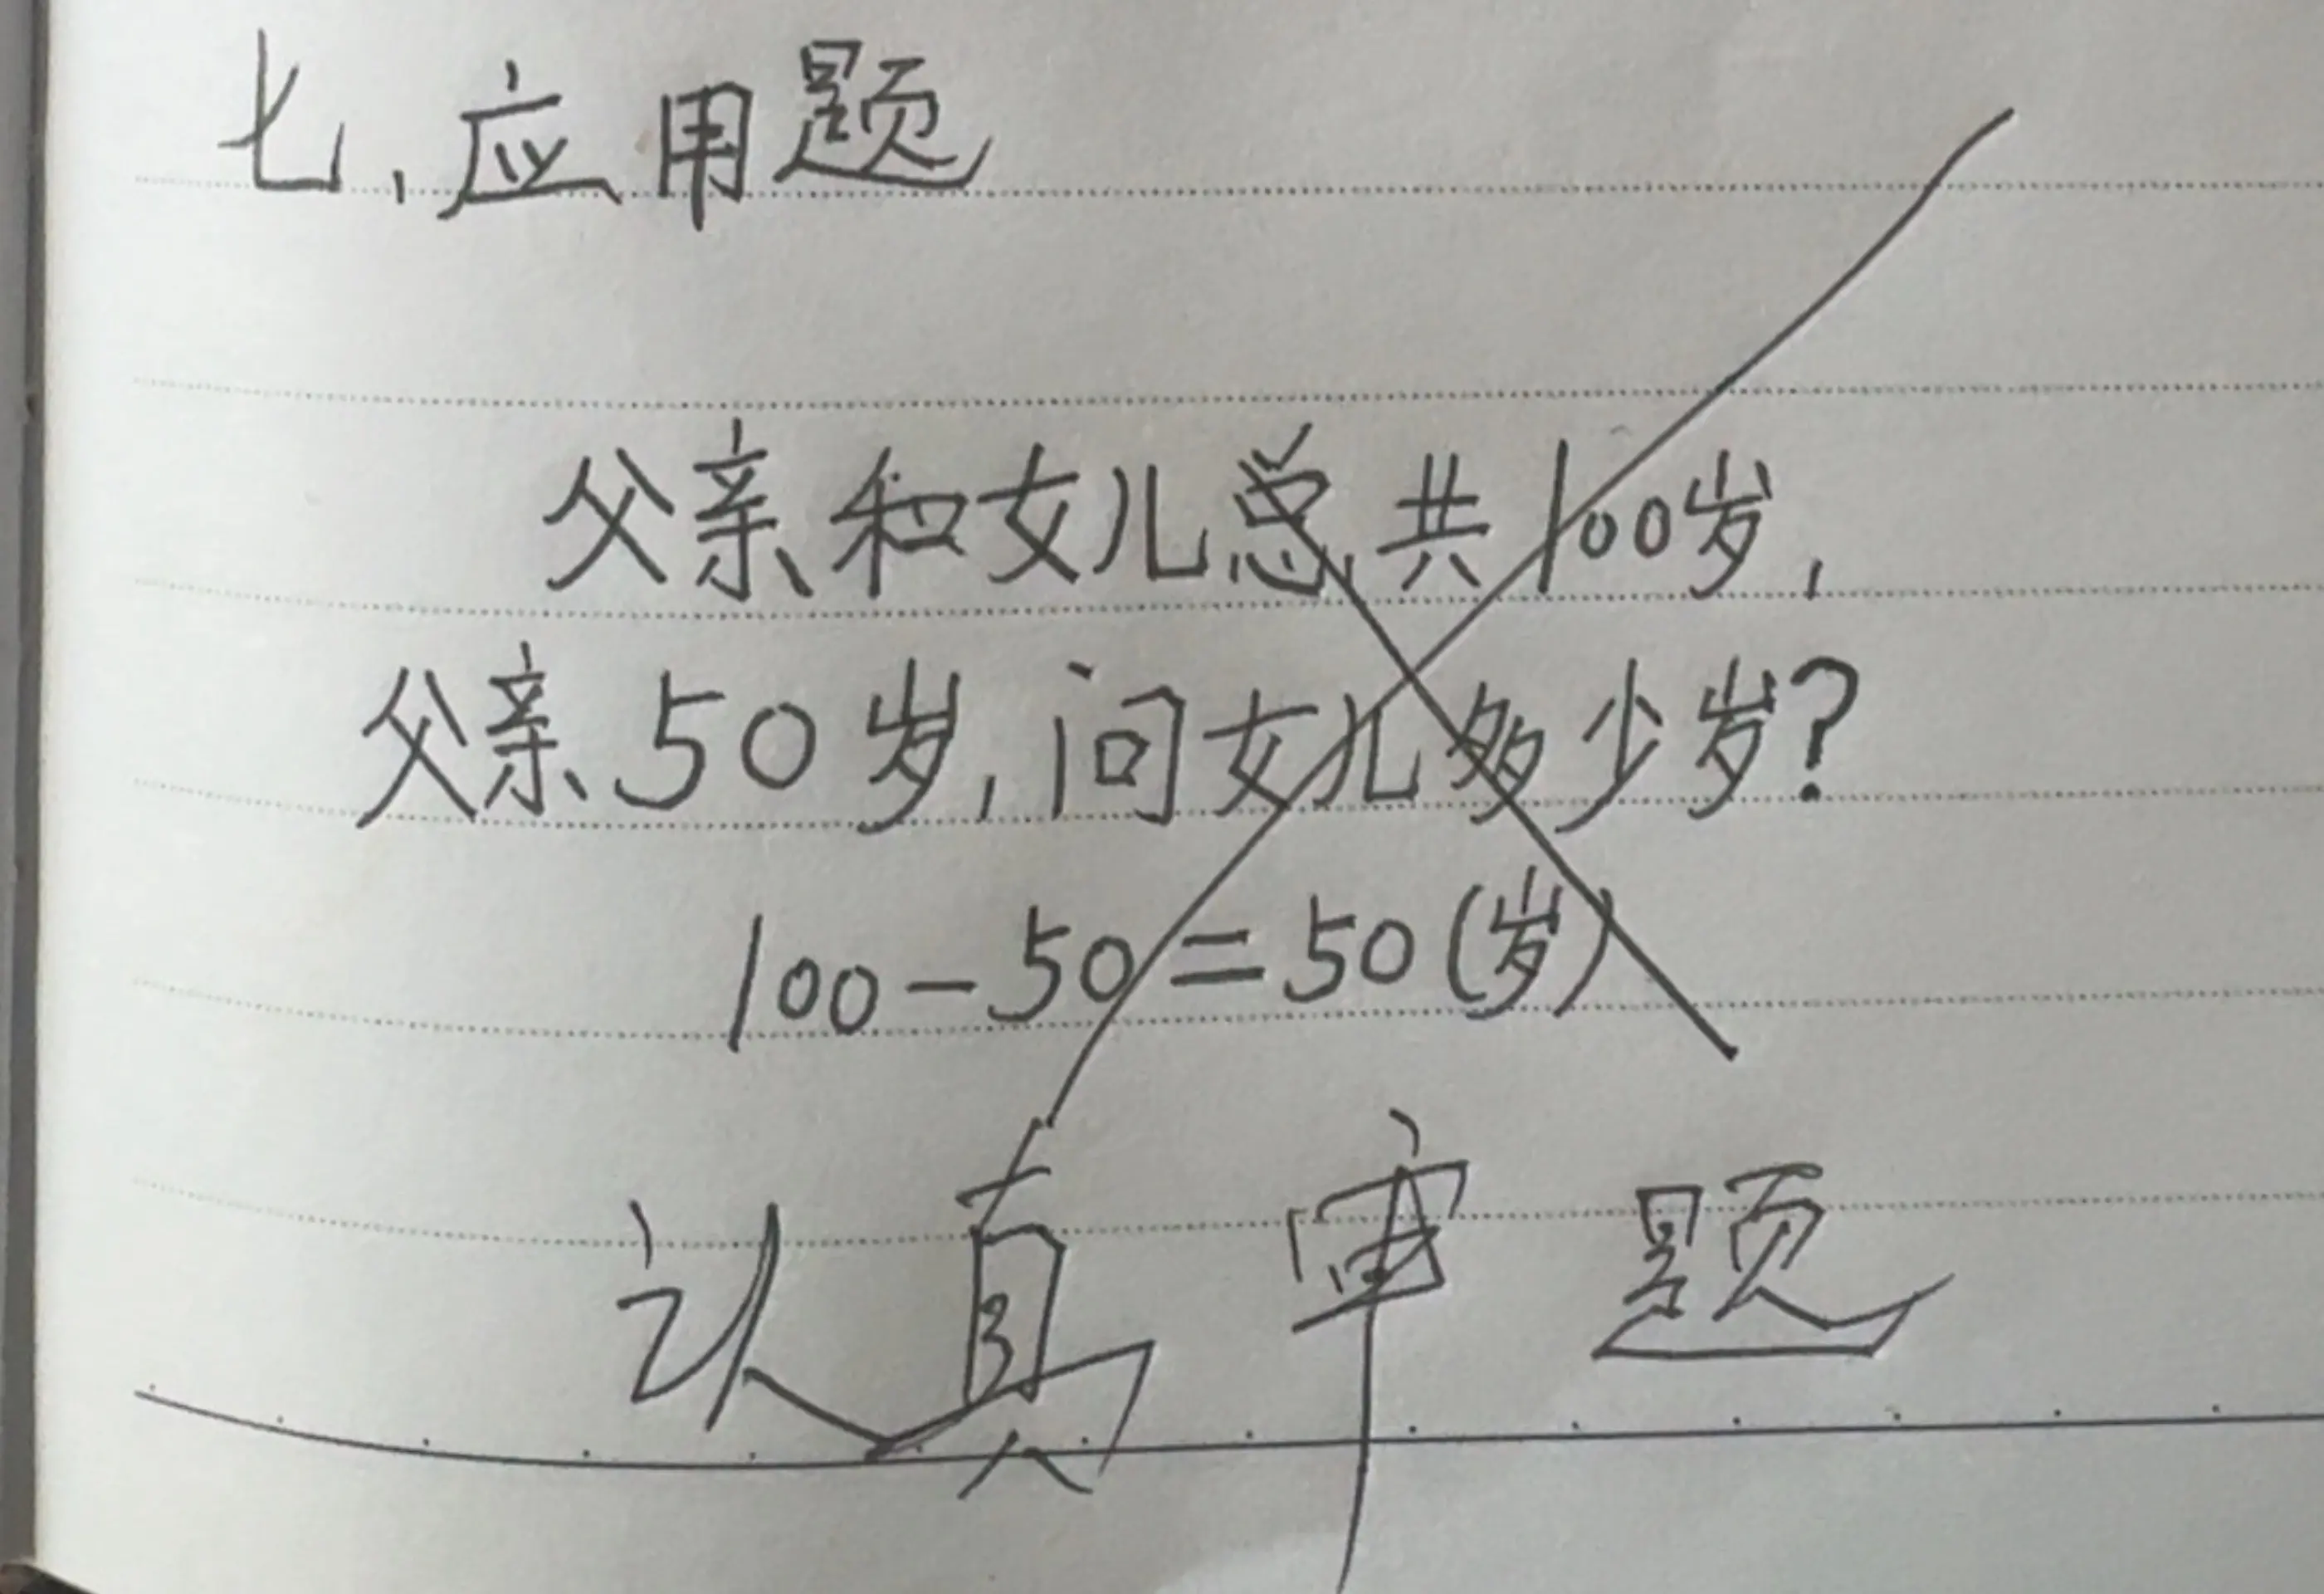 七、应用题
父亲和女儿总共100岁,
父亲50岁,问女儿多少岁?
100-50=50(岁)
认真审题